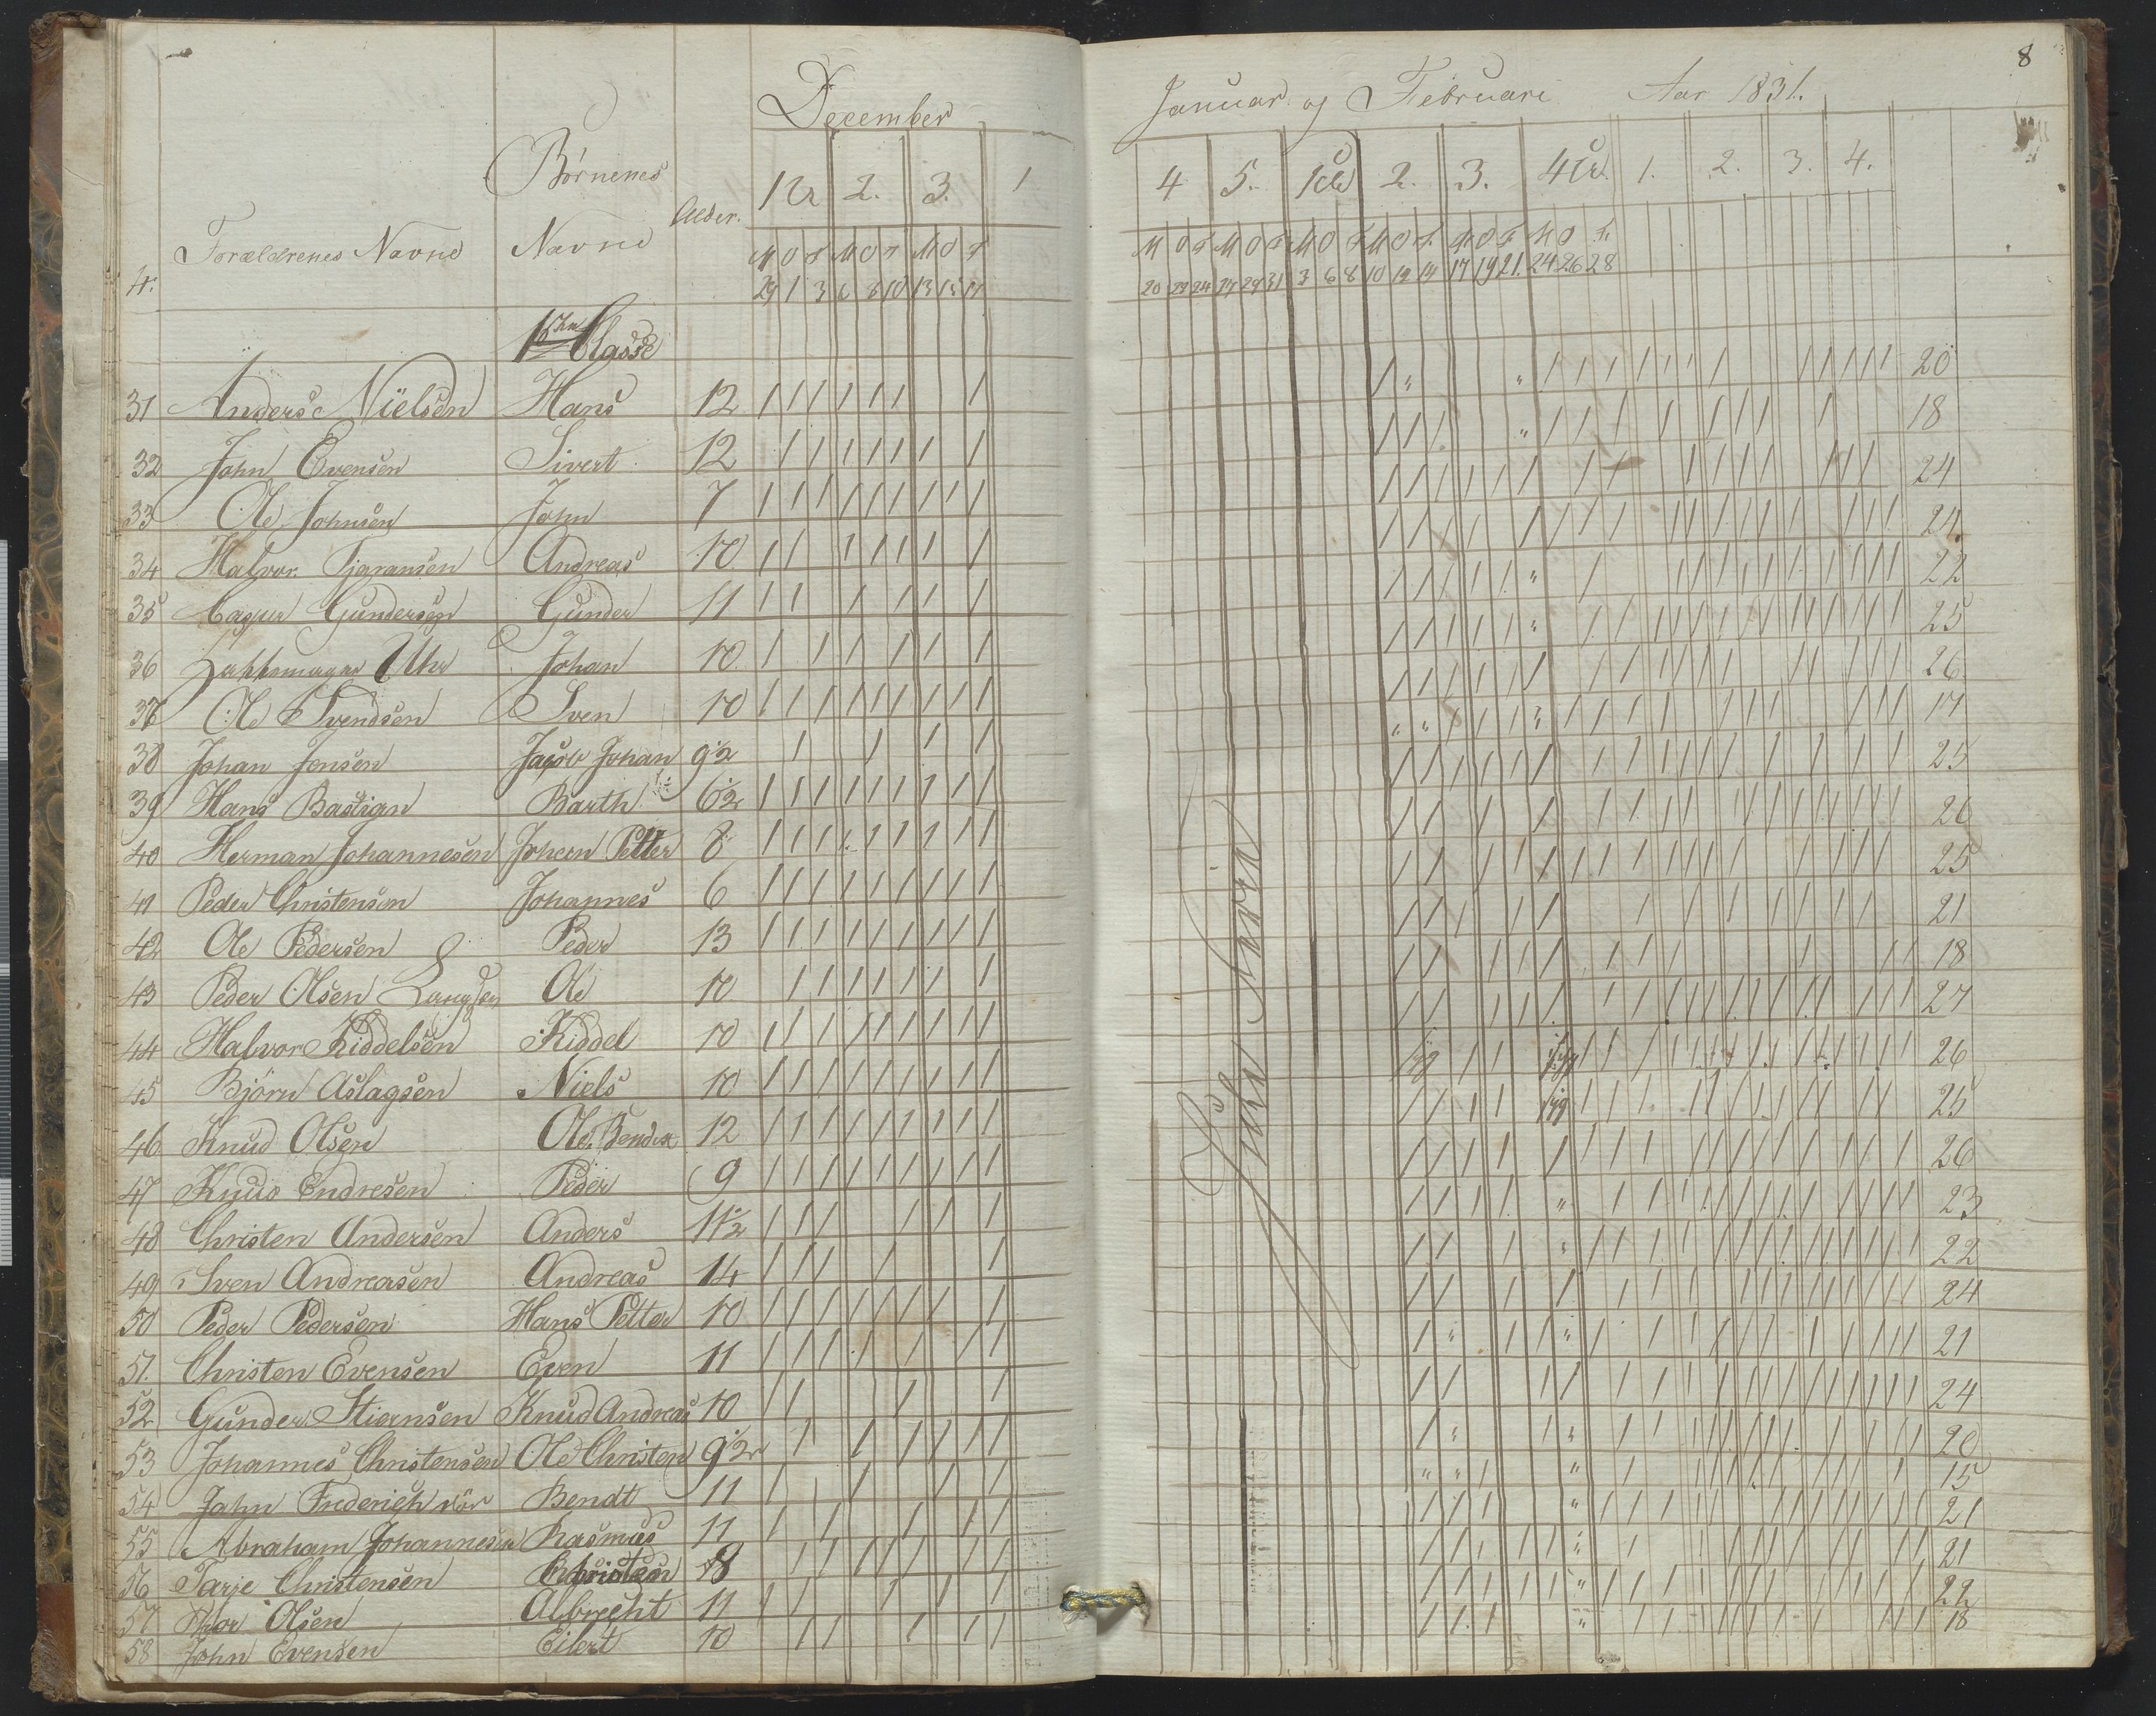 8
December
Januar og Februari Aar 1831.
Børnenes
1 U 2. 3. 1
4 5. 1 U 2. 3. 4 U. 1. 2. 3. 4.
N. Forældrenes Navne Navne Alder.
M O F M O F M O F
M O F M O F M O F M O F M O F M O F
29 1 3 6 8 10 13 15 17
20 22 24 27 29 31 3 6 8 10 12 14 17 19 21. 24 26 28
1ste Classe
31 Anders Nielsen Hans 12 20
32 John Evensen Sivert 12 18
33 Ole Johnsen John 7 24
34 Halvor Andreas 10 24
35 Gundersen Gunder 11 22
36 Johan 10 25
37 Ole Svendsen Sven 10 26
38 Johan Jensen Jacob Johan 9½ 17
39 Hans Bastian Barth 6½ 25
40 Herman Johannesen Johan Petter 8 26
41 Peder Christensen Johannes 6 25
42 Ole Pedersen Peder 13 21
43 Peder Olsen Ole 10 18
44 Halvor Kiddelsen Kiddel 10 27
45 Bjørn Aslagsen Niels 10 26
46 Knud Olsen Ole 12 25
47 Knud Endresen Peder 9 26
48 Christen Andersen Anders 11½ 23
49 Sven Andreasen Andreas 14 22
50 Peder Pedersen Hans Petter 10 24
51. Christen Evensen Even 11 21
52 Gunder Knud Andreas 10 24
53 Johannes Christensen Ole Christen 9½ 20
54 John Friderich Bendt 11 15
55 Abraham Johannesen Rasmus 11 21
56 Tarje Christensen Christen 8 21
57 Olsen Albrecht 11 22
58 John Evensen Eilert 10 18
Jule